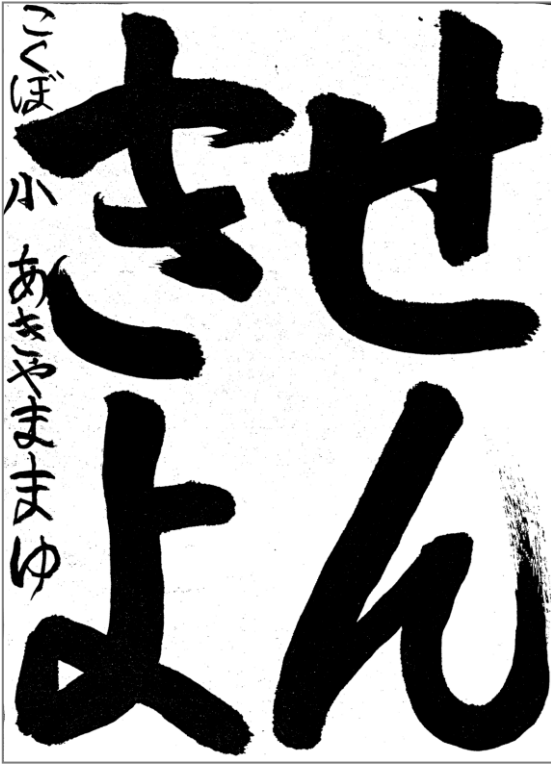 せん
きよ
こくぼ 小 あきやままゆ